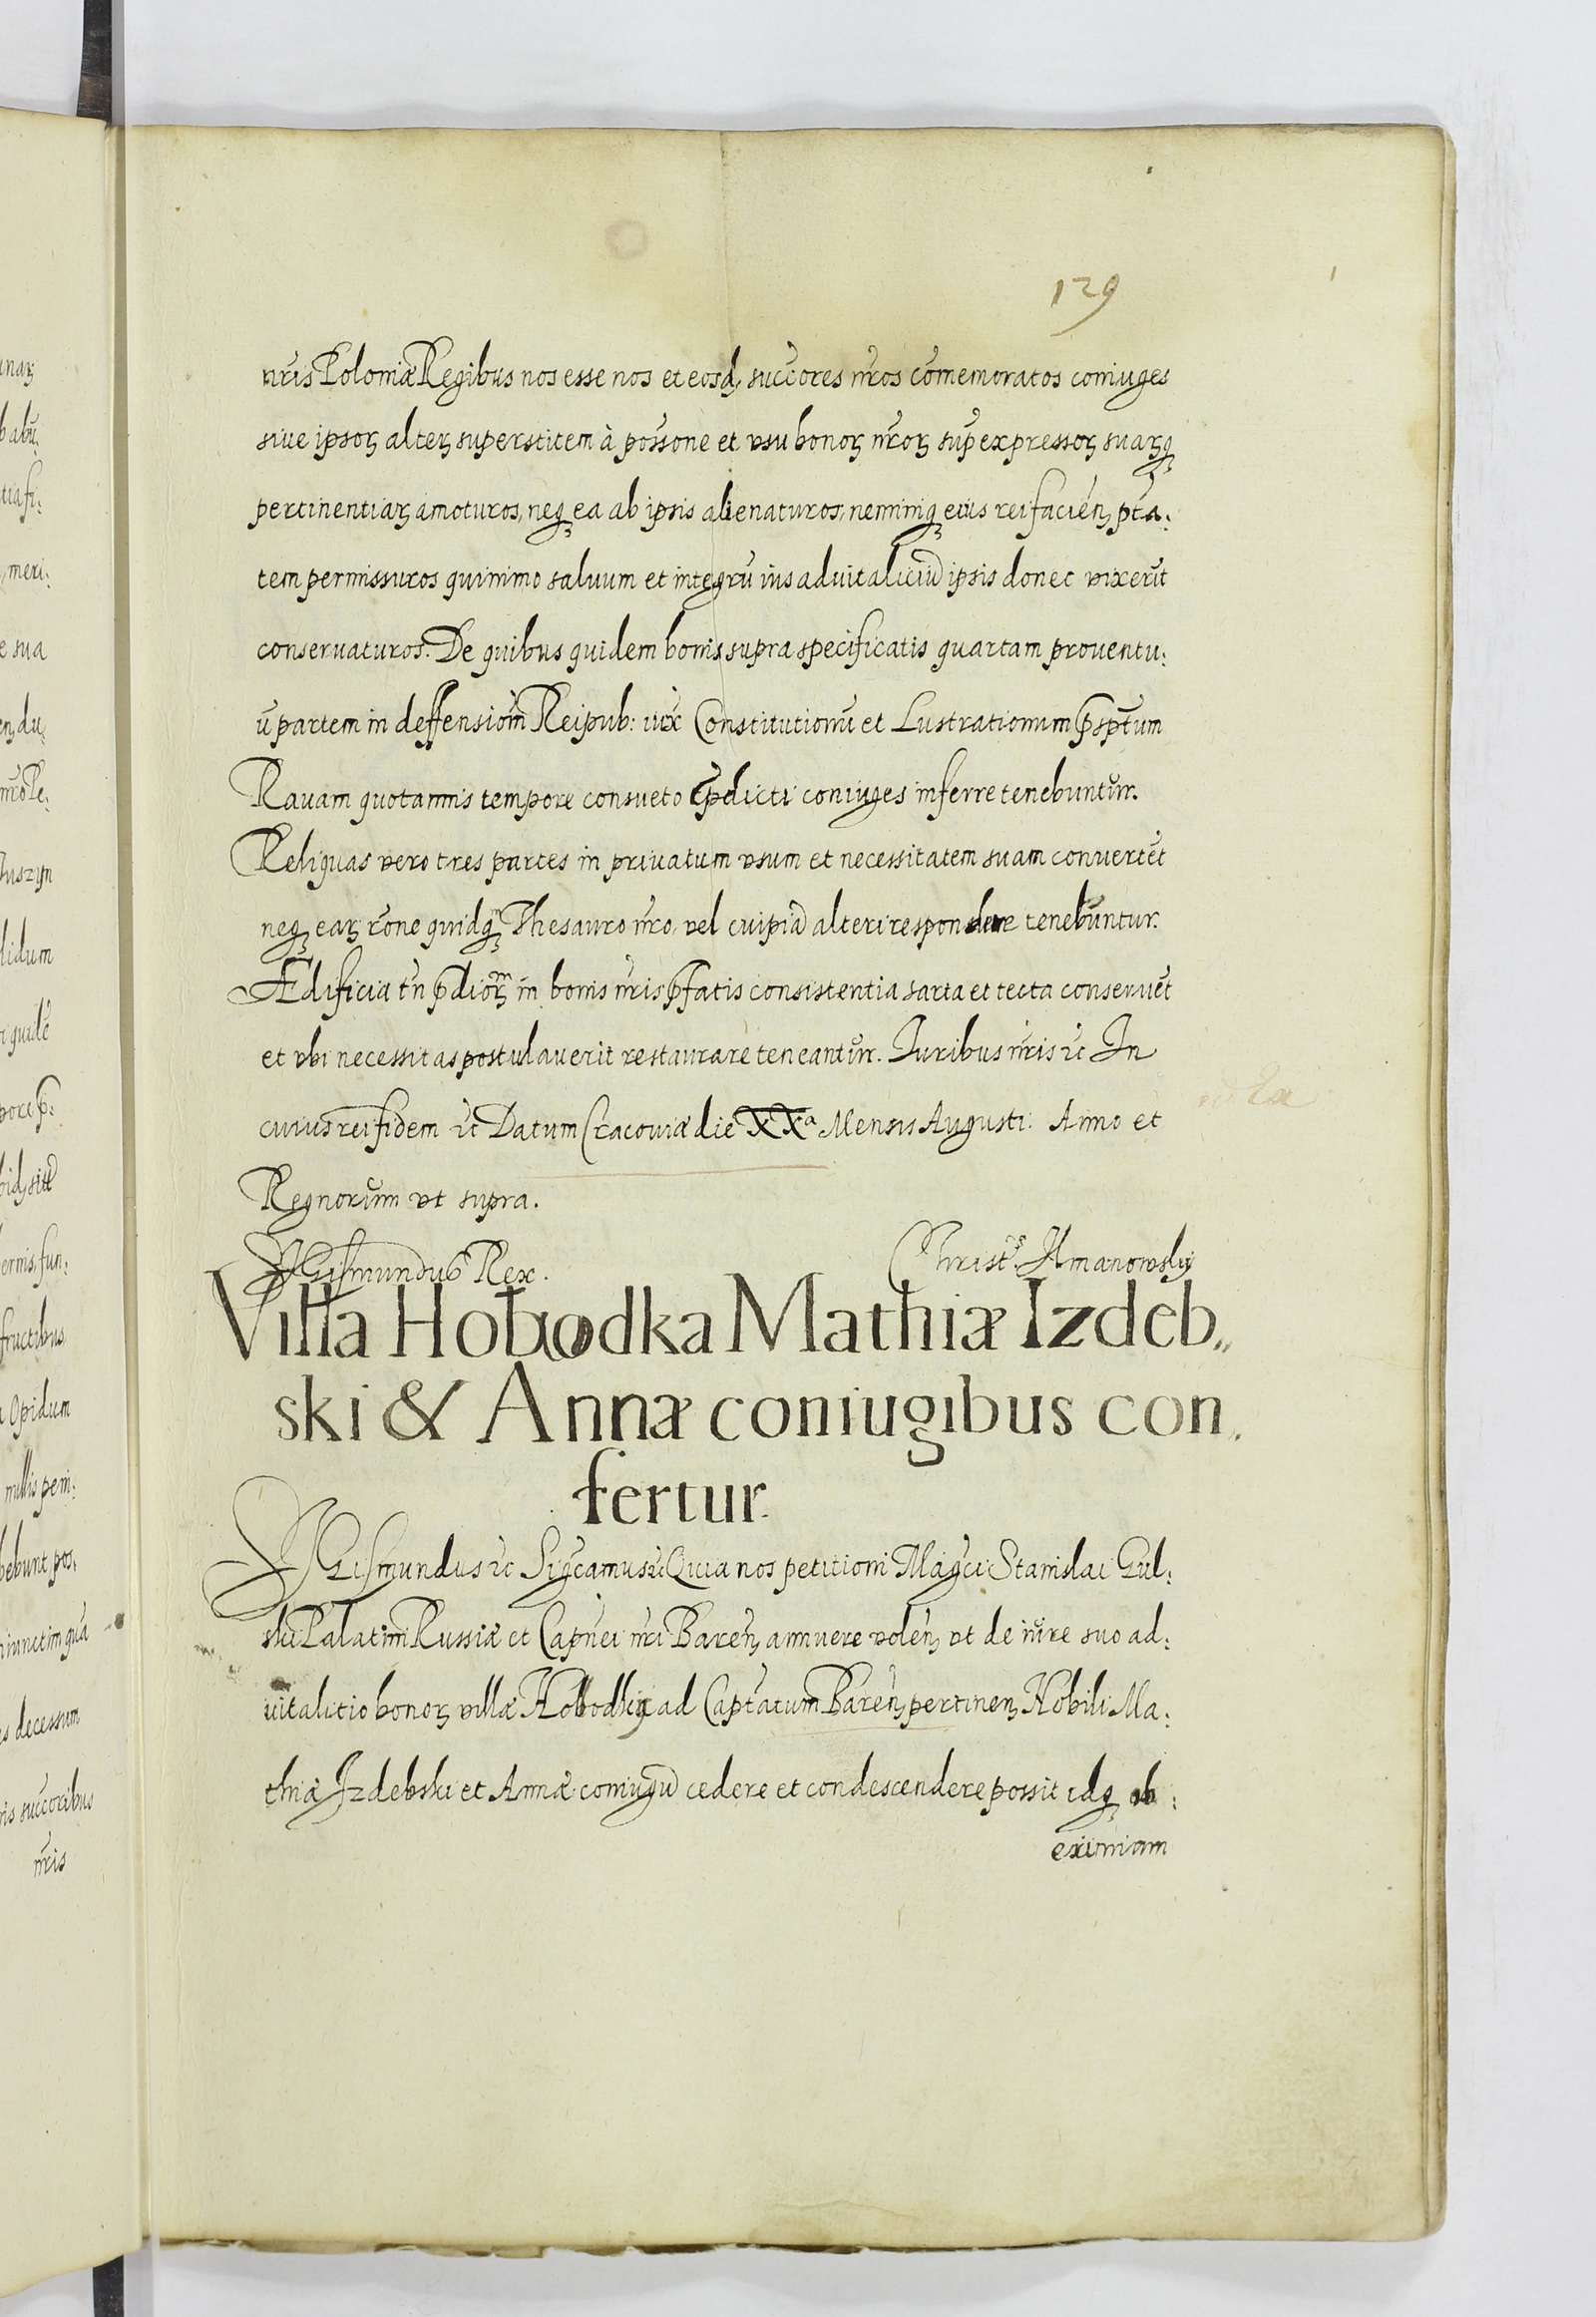 129
nris Poloniæ Regibus nos esse nos et eosdꝫ succores nros comemoratos coniuges
siue ipsoꝝ alteꝝ superstitem à possone et vsu bonoꝝ nroꝝ sup expressoꝝ suaꝝqꝫ
pertinentiaꝝ amoturos, neqꝫ ea ab ipsis alienaturos, neminiqꝫ eius rei facien̄ ptā:
tem permissuros quinimo saluum et integrū ius aduitalitiū ipsis donec vixerūt
conseruaturos. De quibus quidem bonis supra specificatis quartam prouentu:
ū partem in deffensiom̄ Reipub: iux̄ Constitutionū et Lustrationum p̄sp̄tum
Rauam quotannis tempore consueto p̄dicti coniuges inferre tenebuntur.
Reliquas vero tres partes in priuatum vsum et necessitatem suam conuertēt
neqꝫ eaꝝ rōne quidqꝫm Thesauro nro, vel cuipiā alteri respondere tenebuntur.
Ædificia tn̄ p̄dioꝝm in bonis nris p̄fatis consistentia sarta et tecta conseruēt
et vbi necessitas postulauerit restaurare teneantur. Iuribus nris ꝛc In
cuius rei fidem ꝛc Datum Cracouiæ die XXa Mensis Augusti. Anno et
Regnorum vt supra.
Sigismundus Rex. Christs Amanowsky
Villa Hołodka Mathiæ Izdeb„
ski & Annæ coniugibus con„
fertur.
Sigismundus ꝛc Sigcamus ꝛc Quia nos petitioni Magci Stanislai Gul:
ski Palatini Russiæ et Capnei nri Baren̄ annuere volen̄ vt de iure suo ad:
uitalitio bonoꝝ villæ ad Captatum Baren̄ pertinen̄ Nobili Ma:
thiæ Izdebski et Annæ coniugū cedere et condescendere possit idqꝫ ob:
eximiam